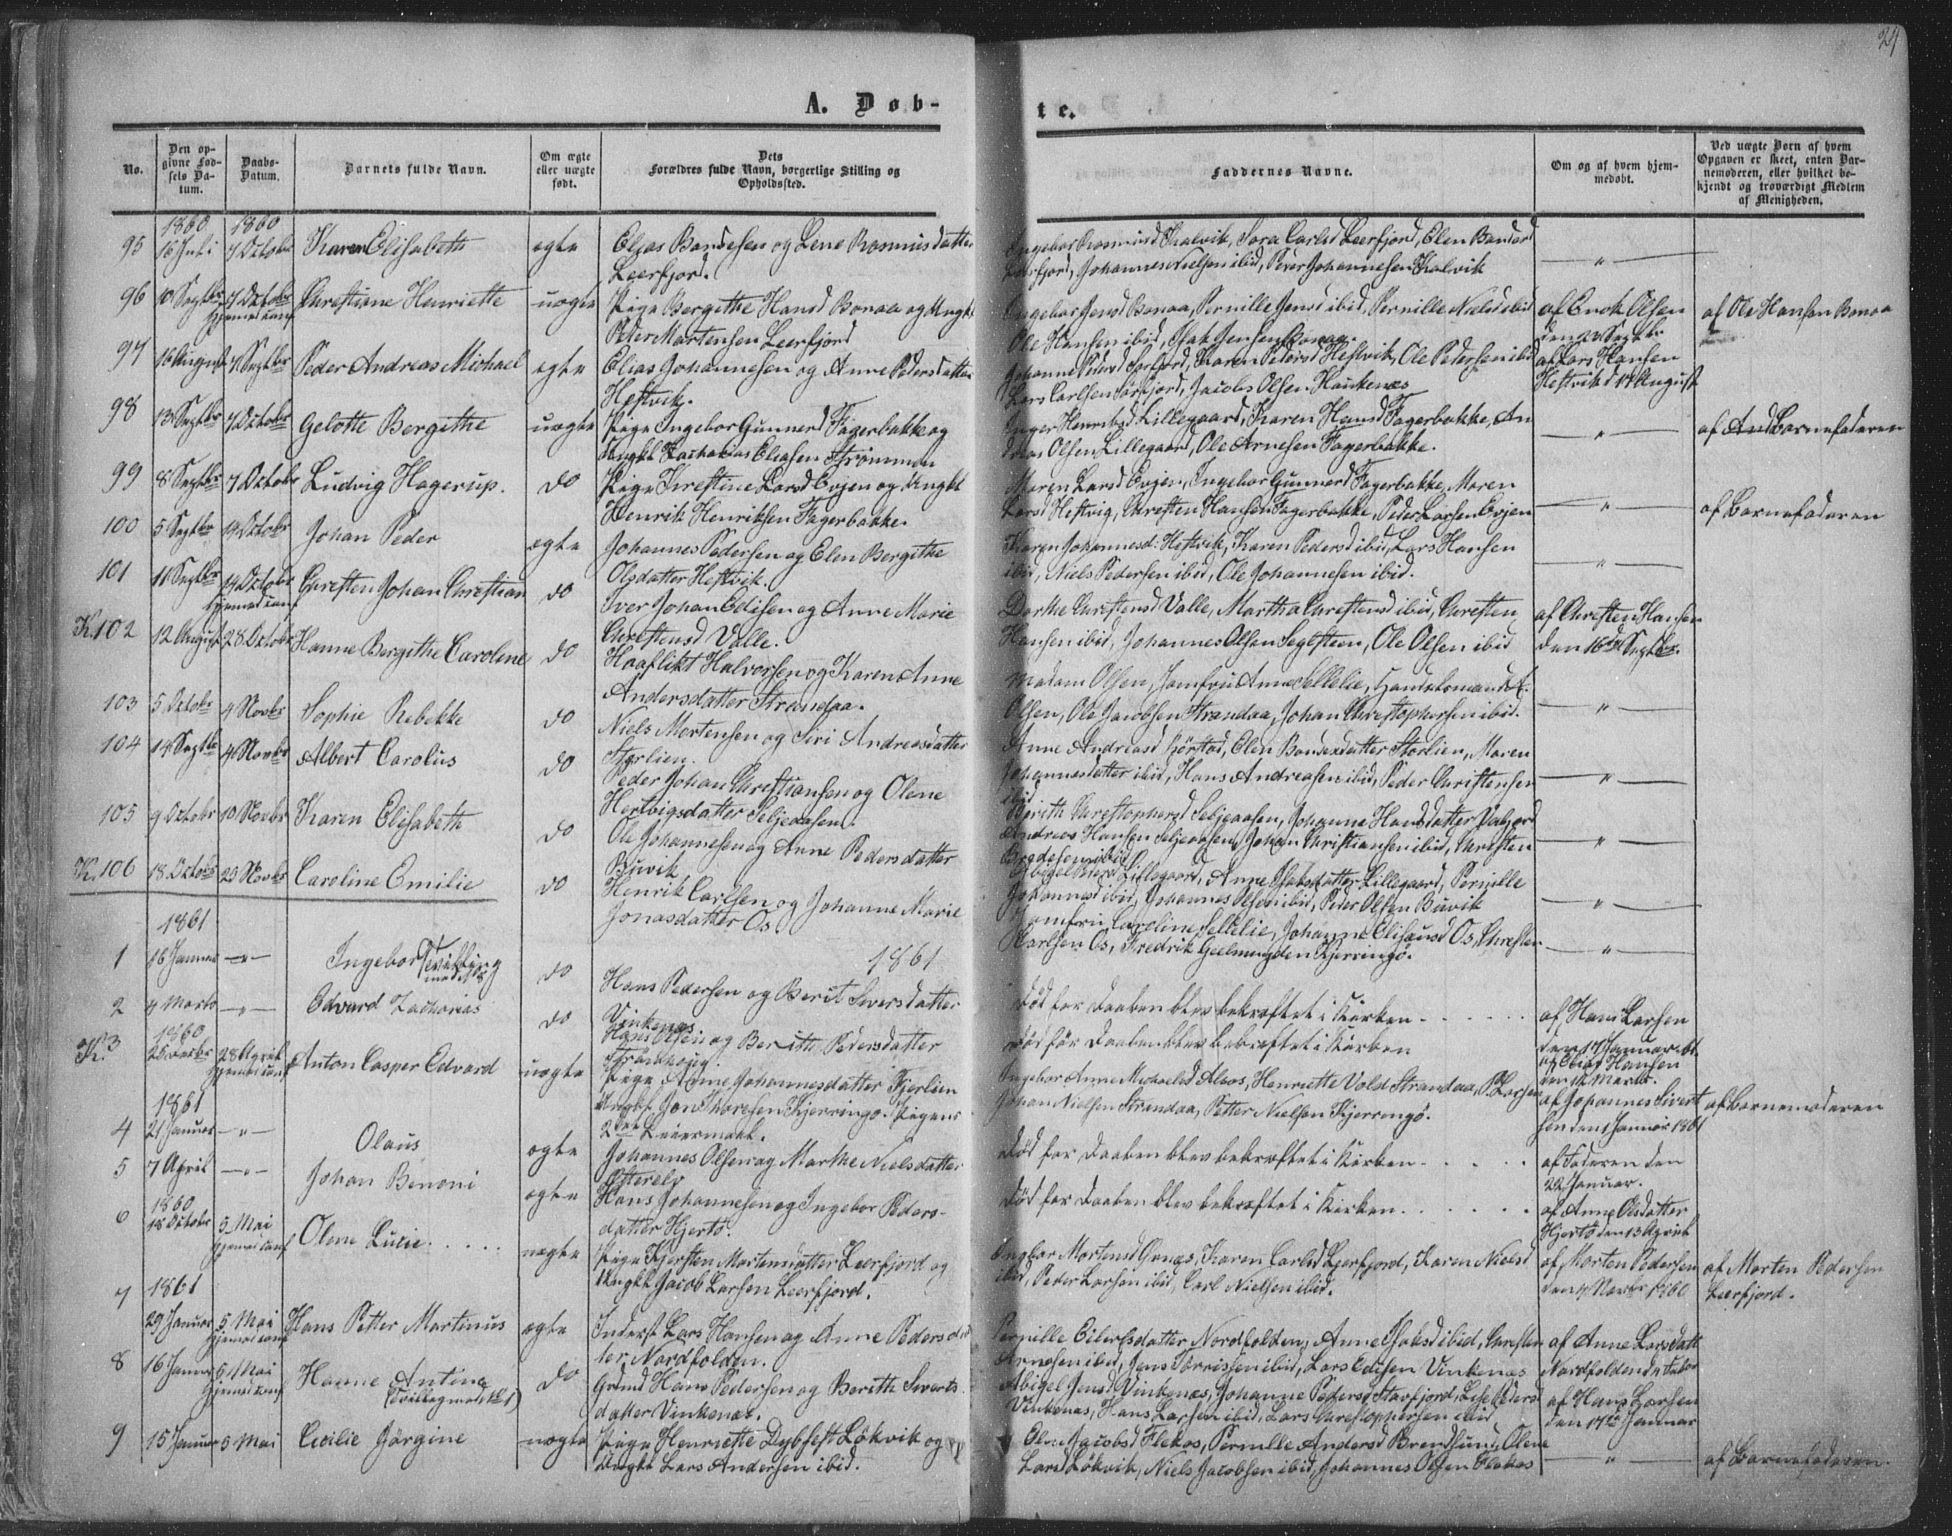 24
A. Døb-
te.
No.
Den op-
givne Fød-
sels Da-
tum.
Daabs-
Datum.
Barnets fulde Navn.
Om ægte
eller uægte
født.
Dets
Forældres fulde Navn, borgerlige Stilling og
Opholdssted.
Faddernes Navne.
Om og af hvem hjem-
medøbt.
Ved uægte Born af hvem
Opgaven er skeet, enten Bar-
nemoderen, eller hvilket be-
kjendt og troværdigt Medlem
af Menigheden.
1860 1860
95 16 Juli 7 Octobr Karen Elisabeth ægte Elias Bendsen og Lene Rasmusdatter
Leerfjord.
Ingebor Rasmusd Kalvik, Sara Carlsd Leerfjord, Elen Bendsd
Leerfjord, Johannes Nielsen ibid, Peder Johannesen Kalvik
96 10 Septbr 7 Octobr Christiane Henriette uægte Pige Bergithe Hansd Bonaa og Ungkl
hjemmed conf
Peder Mortensen Leerfjord
Ingebor Jensd Bonaa, Pernille Jensd ibid, Pernille Nielsd ibid
Ole Hansen ibid, Isak Jensen Bonaa.
af Enok Olsen
den 20 Septbr
af Ole Hansen Bonaa
97 16 August 7 Septbr Peder Andreas Michael ægte Elias Johannesen og Anne Pedersdatter
Heftvik.
Johanne Pedersd Sørfjord, Karen Pedersd Heftvik, Ole Pedersen ibid
Lars Carlsen Sørfjord, Jacob Olsen Haukenæs
af Lars Hansen
Heftvik d 17 August
98 13 Septbr 7 Octobr Gelotte Bergithe uægte Pige Ingebor Gunnersd Fagerbakke og
Ungkl Zacharias Eliasen Strømmen
Inger Henriksd Lillegaard, Karen Hansd Fagerbakke, An
dreas Olsen Lillegaard, Ole Arnesen Fagerbakke.
af Barnefaderen
99 8 Septbr 7 Octobr Ludvig Hagerup. do Pige Kirstine Larsd Evjen og Ungkl
Henrik Henriksen Fagerbakke.
Maren Larsd Evjen, Ingebor Gunnersd Fagerbakke, Maren
Larsd Heftvig, Christen Hansen Fagerbakke, Peder Larsen Evjen
af Barnefaderen
100 5 Septbr 14 Octobr Johan Peder ægte Johannes Pedersen og Elen Bergithe
Olsdatter Heftvik.
Karen Johannesd: Heftvik, Karen Pedersd ibid, Lars Hansen
ibid, Niels Pedersen ibid, Ole Johannesen ibid.
101 11 Septbr 14 Octobr Christen Johan Christian do Iver Johan Edisen og Anne Marie
hjemmed conf
Christensd Valle.
Dorthe Christensd Valle, Martha Christensd ibid, Christen
Hansen ibid, Johannes Olsen Segelsteen, Ole Olsen ibid
af Christen Hansen
den 16de Septbr.
K. 102 12 August 28 Octobr Hanne Bergithe Caroline do Haaflikt Halvorsen og Karen Anne
Andersdatter Strandaa.
Madam Olsen, Jomfru Anne Jellelie, Handelsmand A.
Olsen, Ole Jacobsen Strandaa, Johan Christophersen ibid.
103 5 Octobr 4 Novbr Sophie Rebekke do Niels Mortensen og Siri Andreasdatter
Storlien.
Anne Andreasd Hørstad, Elen Bendixdatter Storlien, Maren
Johannesdatter ibid, Hans Andreasen ibid, Peder Christensen
ibid
104 14 Septbr 4 Novbr Albert Carolus do Peder Johan Christiansen og Olene
Hertvigsdatter Seljeaasen.
Birith Christophersd Seljeaasen, Johanne Hansdatter
Andreas Hansen Seljeaasen, Johan Christiansen ibid, Christen
105 9 Octobr 10 Novbr Karen Elisabeth do Ole Johannesen og Anne Pedersdatter
Buvik
Lillegaard, Anne Isaksdatter Lillegaard, Pernille
Johannesd ibid, Johannes Olsen ibid, Peder Olsen Buvik
K. 106 18 Octobr 20 Novbr Caroline Emilie do Henrik Carlsen og Johanne Marie
Jonasdatter Os
Jomfru Caroline Jellelie, Johanne Elisæusd Os, Christen
Karlsen Os, Fredrik Geelmuyden Kjerringø.
1861
1861
1 16 Januar Ingebor Tvilling
med No 8
do Hans Pedersen og Berit Siversdatter
Vinkenæs
Død før Daaben blev bekræftet i Kirken
af Hans Larsen
den 17 Januar 61.
2 4 Marts Edvard Zacharias do Hans Olsen og Berith Pedersdatter
Strandhoug
Død før Daaben blev bekræftet i Kirken
af Elias Hansen
den 12 Marts.
1860
K. 3 28 April Anton Casper Edvard uægte Pige Anne Johannesdatter Fjerlien
hjemmed conf
Ungkl Jon Thoresen Kjerringø. Pigens
2det Leiermaal.
Ingebor Anne Michaelsd Alsos, Henriette Vold Strandaa, P. Larsen
Johan Nielsen Strandaa, Petter Nielsen Kjerringø.
af Johannes Sivert
sen den 1 Januar 1861
af Barnemoderen
1861
4 21 Januar Olaus ægte Johannes Olsen og Marthe Nielsdatter
Ottereelv
Død før Daaben blev bekræftet i Kirken
af Faderen den
22 Januar.
5 7 April Johan Benoni ægte Hans Johannesen og Ingebor Peders-
datter Hjertø.
Død før Daaben blev bekræftet i Kirken
af Anne Olsdatter
Hjertø den 13 April
1860
6 18 Octobr 5 Mai Olene Lucie uægte Pige Kjersten Martensdatter Leerfjord og
hjemmed conf
Ungkl Jacob Larsen Leerfjord.
Ingebor Mortensd Grnæs, Karen Carlsd Leerfjord, Karen Nielsd
ibid, Peder Larsen ibid, Carl Nielsen ibid.
af Morten Pedersen
den 4 Novbr 1860
af Morten Pedersen
Leerfjord.
1861
7 29 Januar 5 Mai Hans Petter Martinus ægte Inderst Lars Hansen og Anne Pedersdat
hjemmed conf
ter, Nordfolden.
Pernille Eilertsdatter Nordfolden, Anne Isaksd ibid, Christen
Arnesen ibid, Jens Tørrissen ibid, Lars Edisen Vinkenæs
af Anne Larsdatt
Nordfolden
8 16 Januar 5 Mai Hanne Antine do Grmd Hans Pedersen og Berith Siverts
hjemmed conf
(Tvilling med No 1)
datter Vinkenæs.
Abigel Jensd Vinkenæs, Johanne Pedersd Starfjord, Lise Pedersd
Vinkenæs, Hans Larsen ibid, Lars Christophersen ibid
af Hans Larsen
den 17de Januar
9 15 Januar 5 Mai Cecilie Jørgine uægte Pige Henriette Dybfest Løkvik og
Ungkl Lars Andersen ibid.
Elen Jacobsd Flekos, Pernille Andersd Brendsund, Olene
Larsd Løkvik, Niels Jacobsen ibid, Johannes Olsen Flekos
af Barnefaderen.